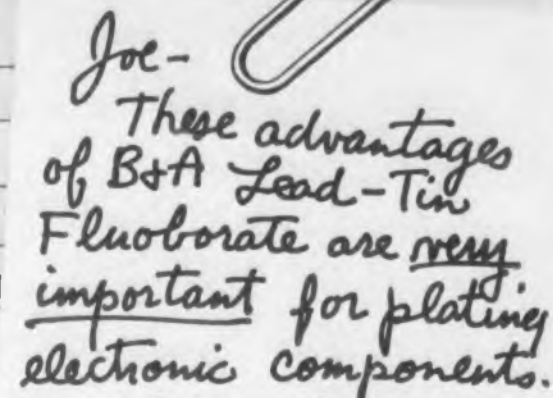 Joe-
These advantages
of B&A Lead-Tin
Fluoborate are very
important for plating
electronic components.